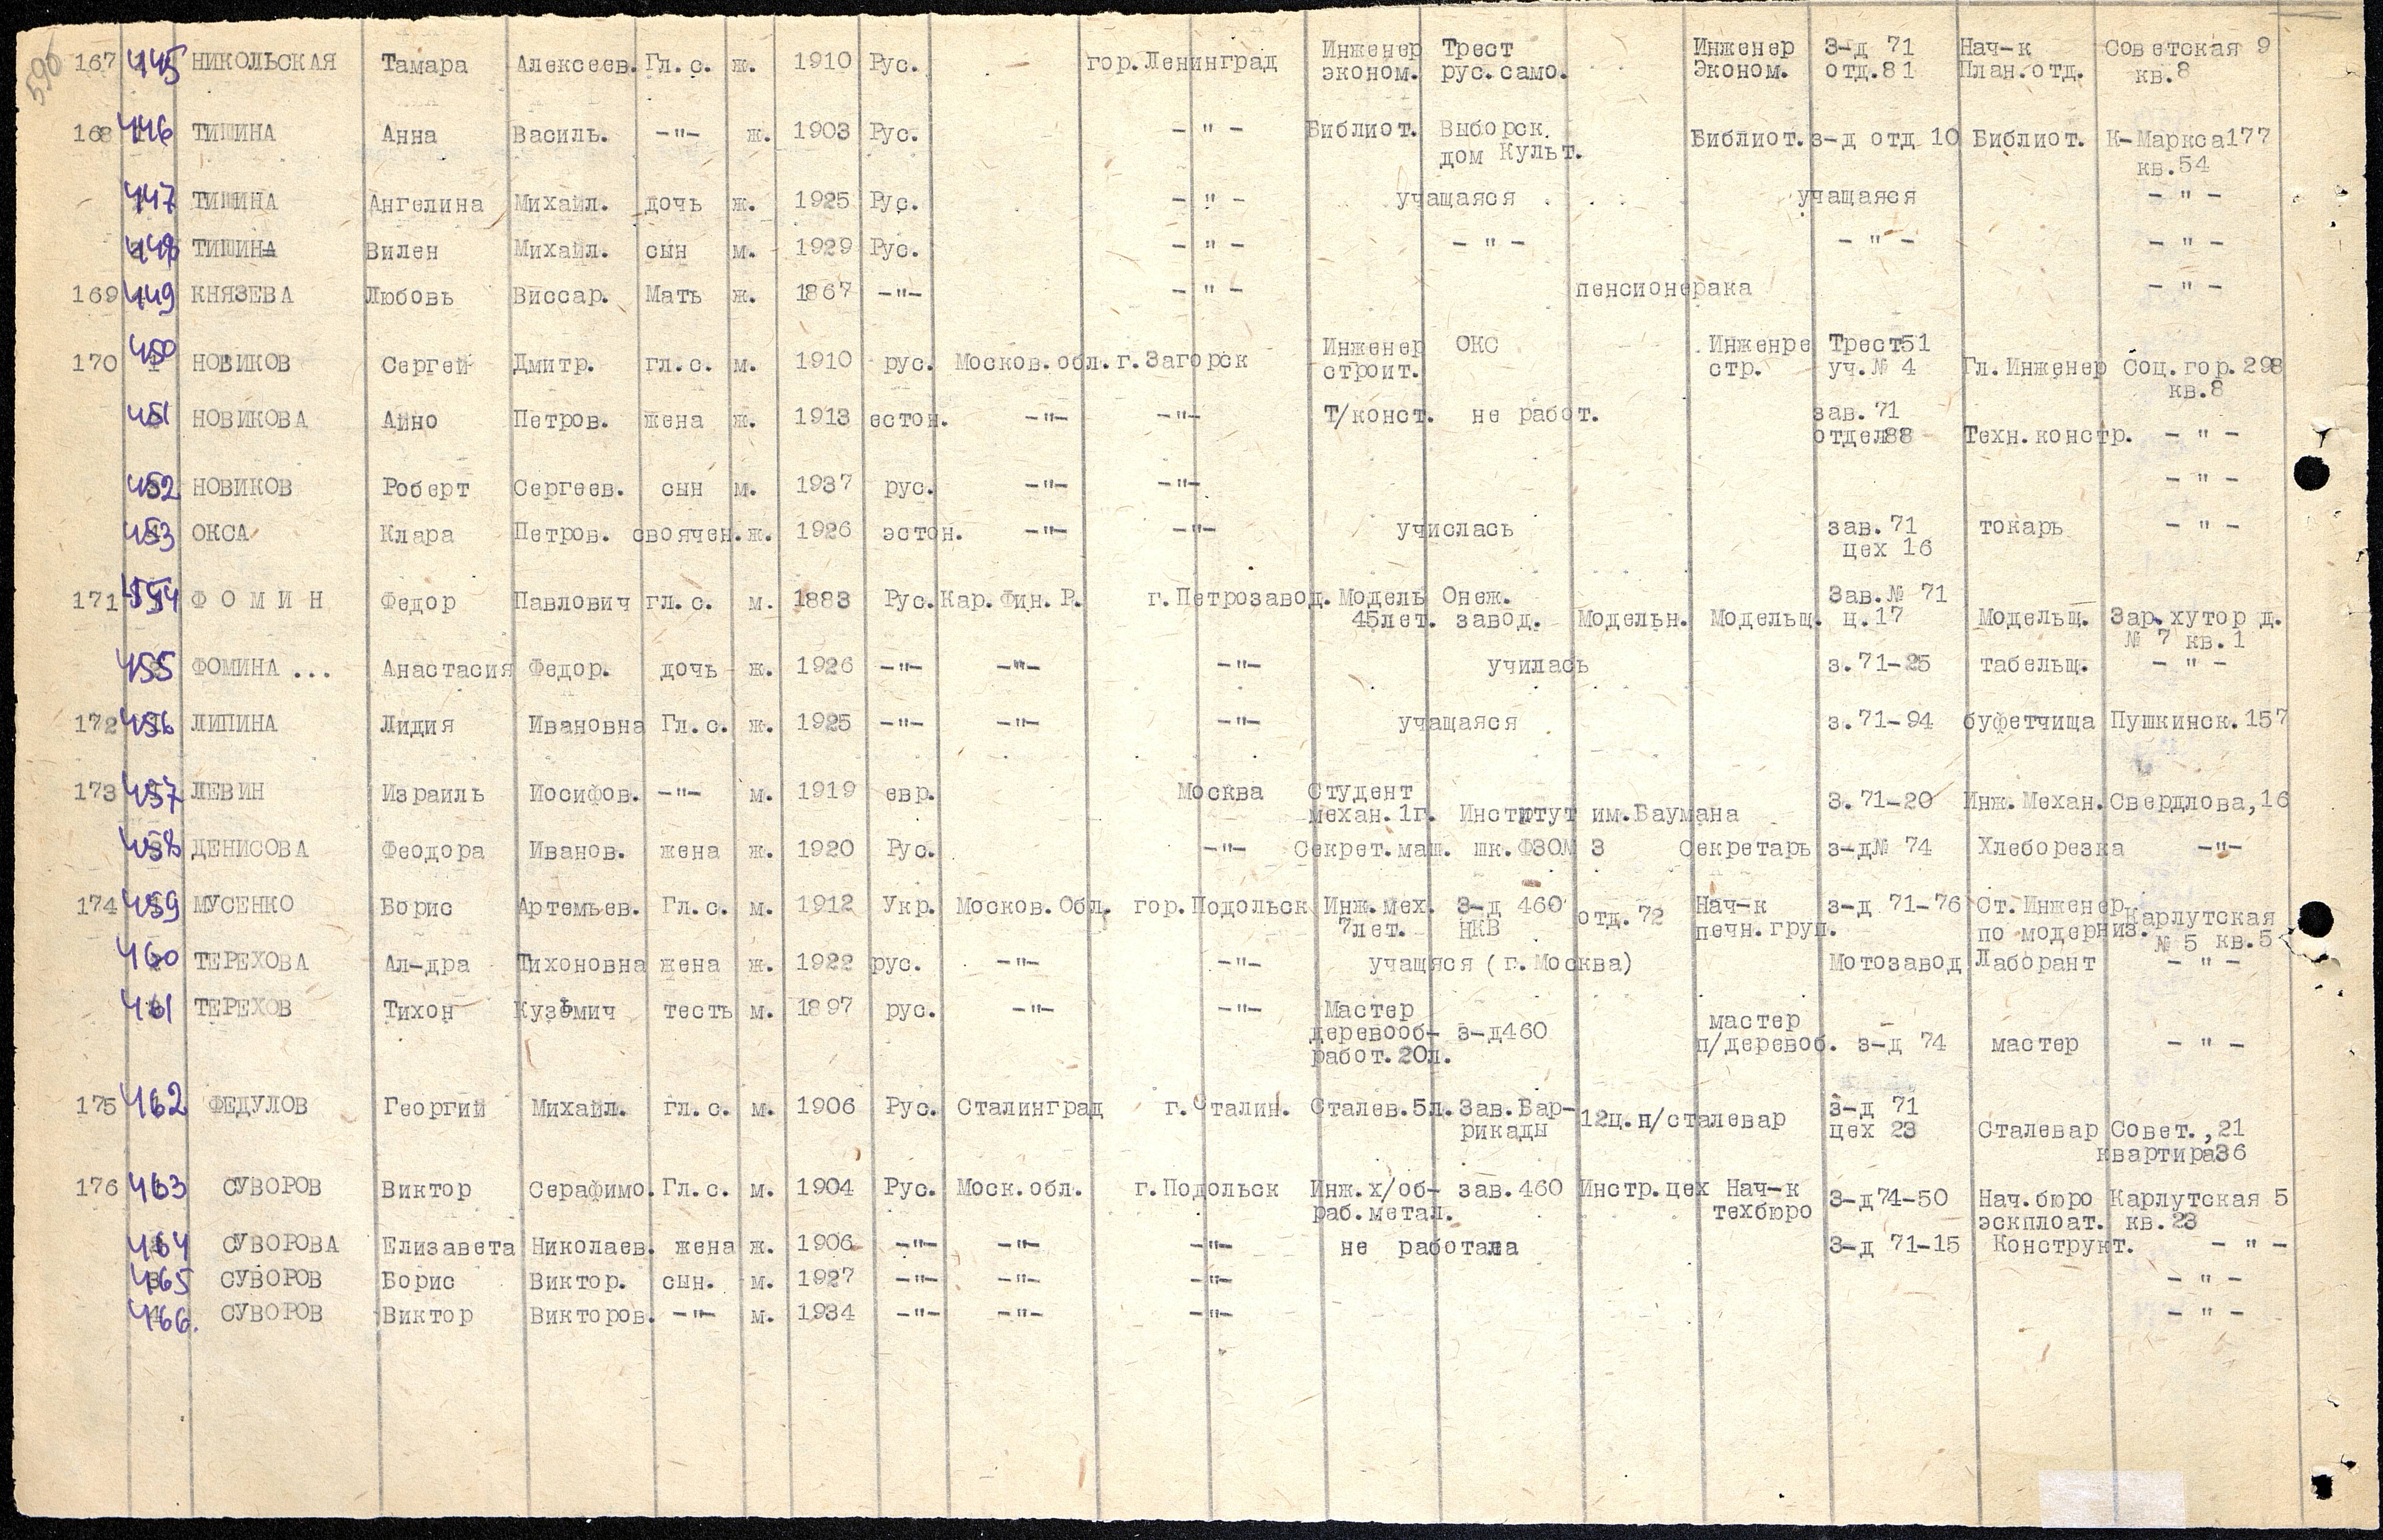 590
167 445 НИКОЛЬСКАЯ Тамара Алексеев. Гл.с. ж. 1910 Рус. гор.Ленинград Инженер Трест Инженер З-д 71 Нач-к Советская 9
эконом. рус.само. Эконом. отд.81 План.отд. кв.8
168 446 ТИШИНА Анна Василь. -"- ж. 1903 Рус. - " - Библиот. Выборск. Библиот. з-д отд 10 Библиот. К-Маркса177
дом Культ. кв.54
447 ТИШИНА Ангелина Михайл. дочь ж. 1925 Рус. - " - учащаяся учащаяся - " -
448 ТИШИНА Вилен Михайл. сын м. 1929 Рус. - " - - " - - " - - " -
169 449 КНЯЗЕВА Любовь Виссар. Мать ж. 1867 -"- - " - пенсионерака - " -
170 450 НОВИКОВ Сергей Дмитр. гл.с. м. 1910 рус. Москов.обл. г.Загорск Инженер ОКС Инженре Трест51 Гл.Инженер Соц.гор.298
строит. стр. уч.№ 4 кв.8
451 НОВИКОВА Айно Петров. жена ж. 1913 естон. -"- -"- Т/конст. не работ. зав.71
отдел88 Техн.констр. - " -
452 НОВИКОВ Роберт Сергеев. сын м. 1937 рус. -"- -"- - " -
453 ОКСА Клара Петров. своячен. ж. 1926 эстон. -"- -"- училась зав.71 токарь - " -
цех 16
171 454 Ф О М И Н Федор Павлович гл.с. м. 1883 Рус. Кар.Фин.Р. г.Петрозавод. Модель Онеж. Зав.№ 71
45лет. завод. Модельн. Модельщ. ц.17 Модельщ. Зар.хутор д.
№ 7 кв.1
455 ФОМИНА ... Анастасия Федор. дочь ж. 1926 -"- -"- -"- училась з.71-25 табельщ. - " -
172 456 ЛИПИНА Лидия Ивановна Гл.с. ж. 1925 -"- -"- -"- учащаяся з.71-94 буфетчица Пушкинск.157
173 457 ЛЕВИН Израиль Иосифов. -"- м. 1919 евр. Москва Студент З.71-20 Инж.Механ. Свердлова,16
механ.1г. Институт им.Баумана
458 ДЕНИСОВА Феодора Иванов. жена ж. 1920 Рус. -"- Секрет.маш. шк.ФЗО№ 3 Секретарь з-д№ 74 Хлеборезка -"-
174 459 МУСЕНКО Борис Артемьев. Гл.с. м. 1912 Укр. Москов.Обл. гор.Подольск Инж.мех. З-д 460 отд.72 Нач-к з-д 71-76 Ст.Инженер Карлутская
7лет. НКВ печн.груп. по модерниз. № 5 кв.5
460 ТЕРЕХОВА Ал-дра Тихоновна жена ж. 1922 рус. -"- -"- учащяся (г.Москва) Мотозавод Лаборант - " -
461 ТЕРЕХОВ Тихон Кузьмич тесть м. 1897 рус. -"- -"- Мастер
деревооб- з-д460 мастер
работ.20л. п/деревоб. з-д 74 мастер - " -
175 462 ФЕДУЛОВ Георгий Михайл. гл.с. м. 1906 Рус. Сталинград г.Сталин. Сталев.5л. Зав.Бар- 12ц.н/сталевар з-д 71
рикады цех 23 Сталевар Совет.,21
квартира36
176 463 СУВОРОВ Виктор Серафимо. Гл.с. м. 1904 Рус. Моск.обл. г.Подольск Инж.х/об- зав.460 Инстр.цех Нач-к З-д74-50 Нач.бюро Карлутская 5
раб.метал. техбюро эсkплоат. кв.23
464 СУВОРОВА Елизавета Николаев. жена ж. 1906 -"- -"- -"- не работала З-д 71-15 Конструкт. - " -
465 СУВОРОВ Борис Виктор. сын. м. 1927 -"- -"- -"- - " -
466. СУВОРОВ Виктор Викторов. -"- м. 1934 -"- -"- -"- - " -